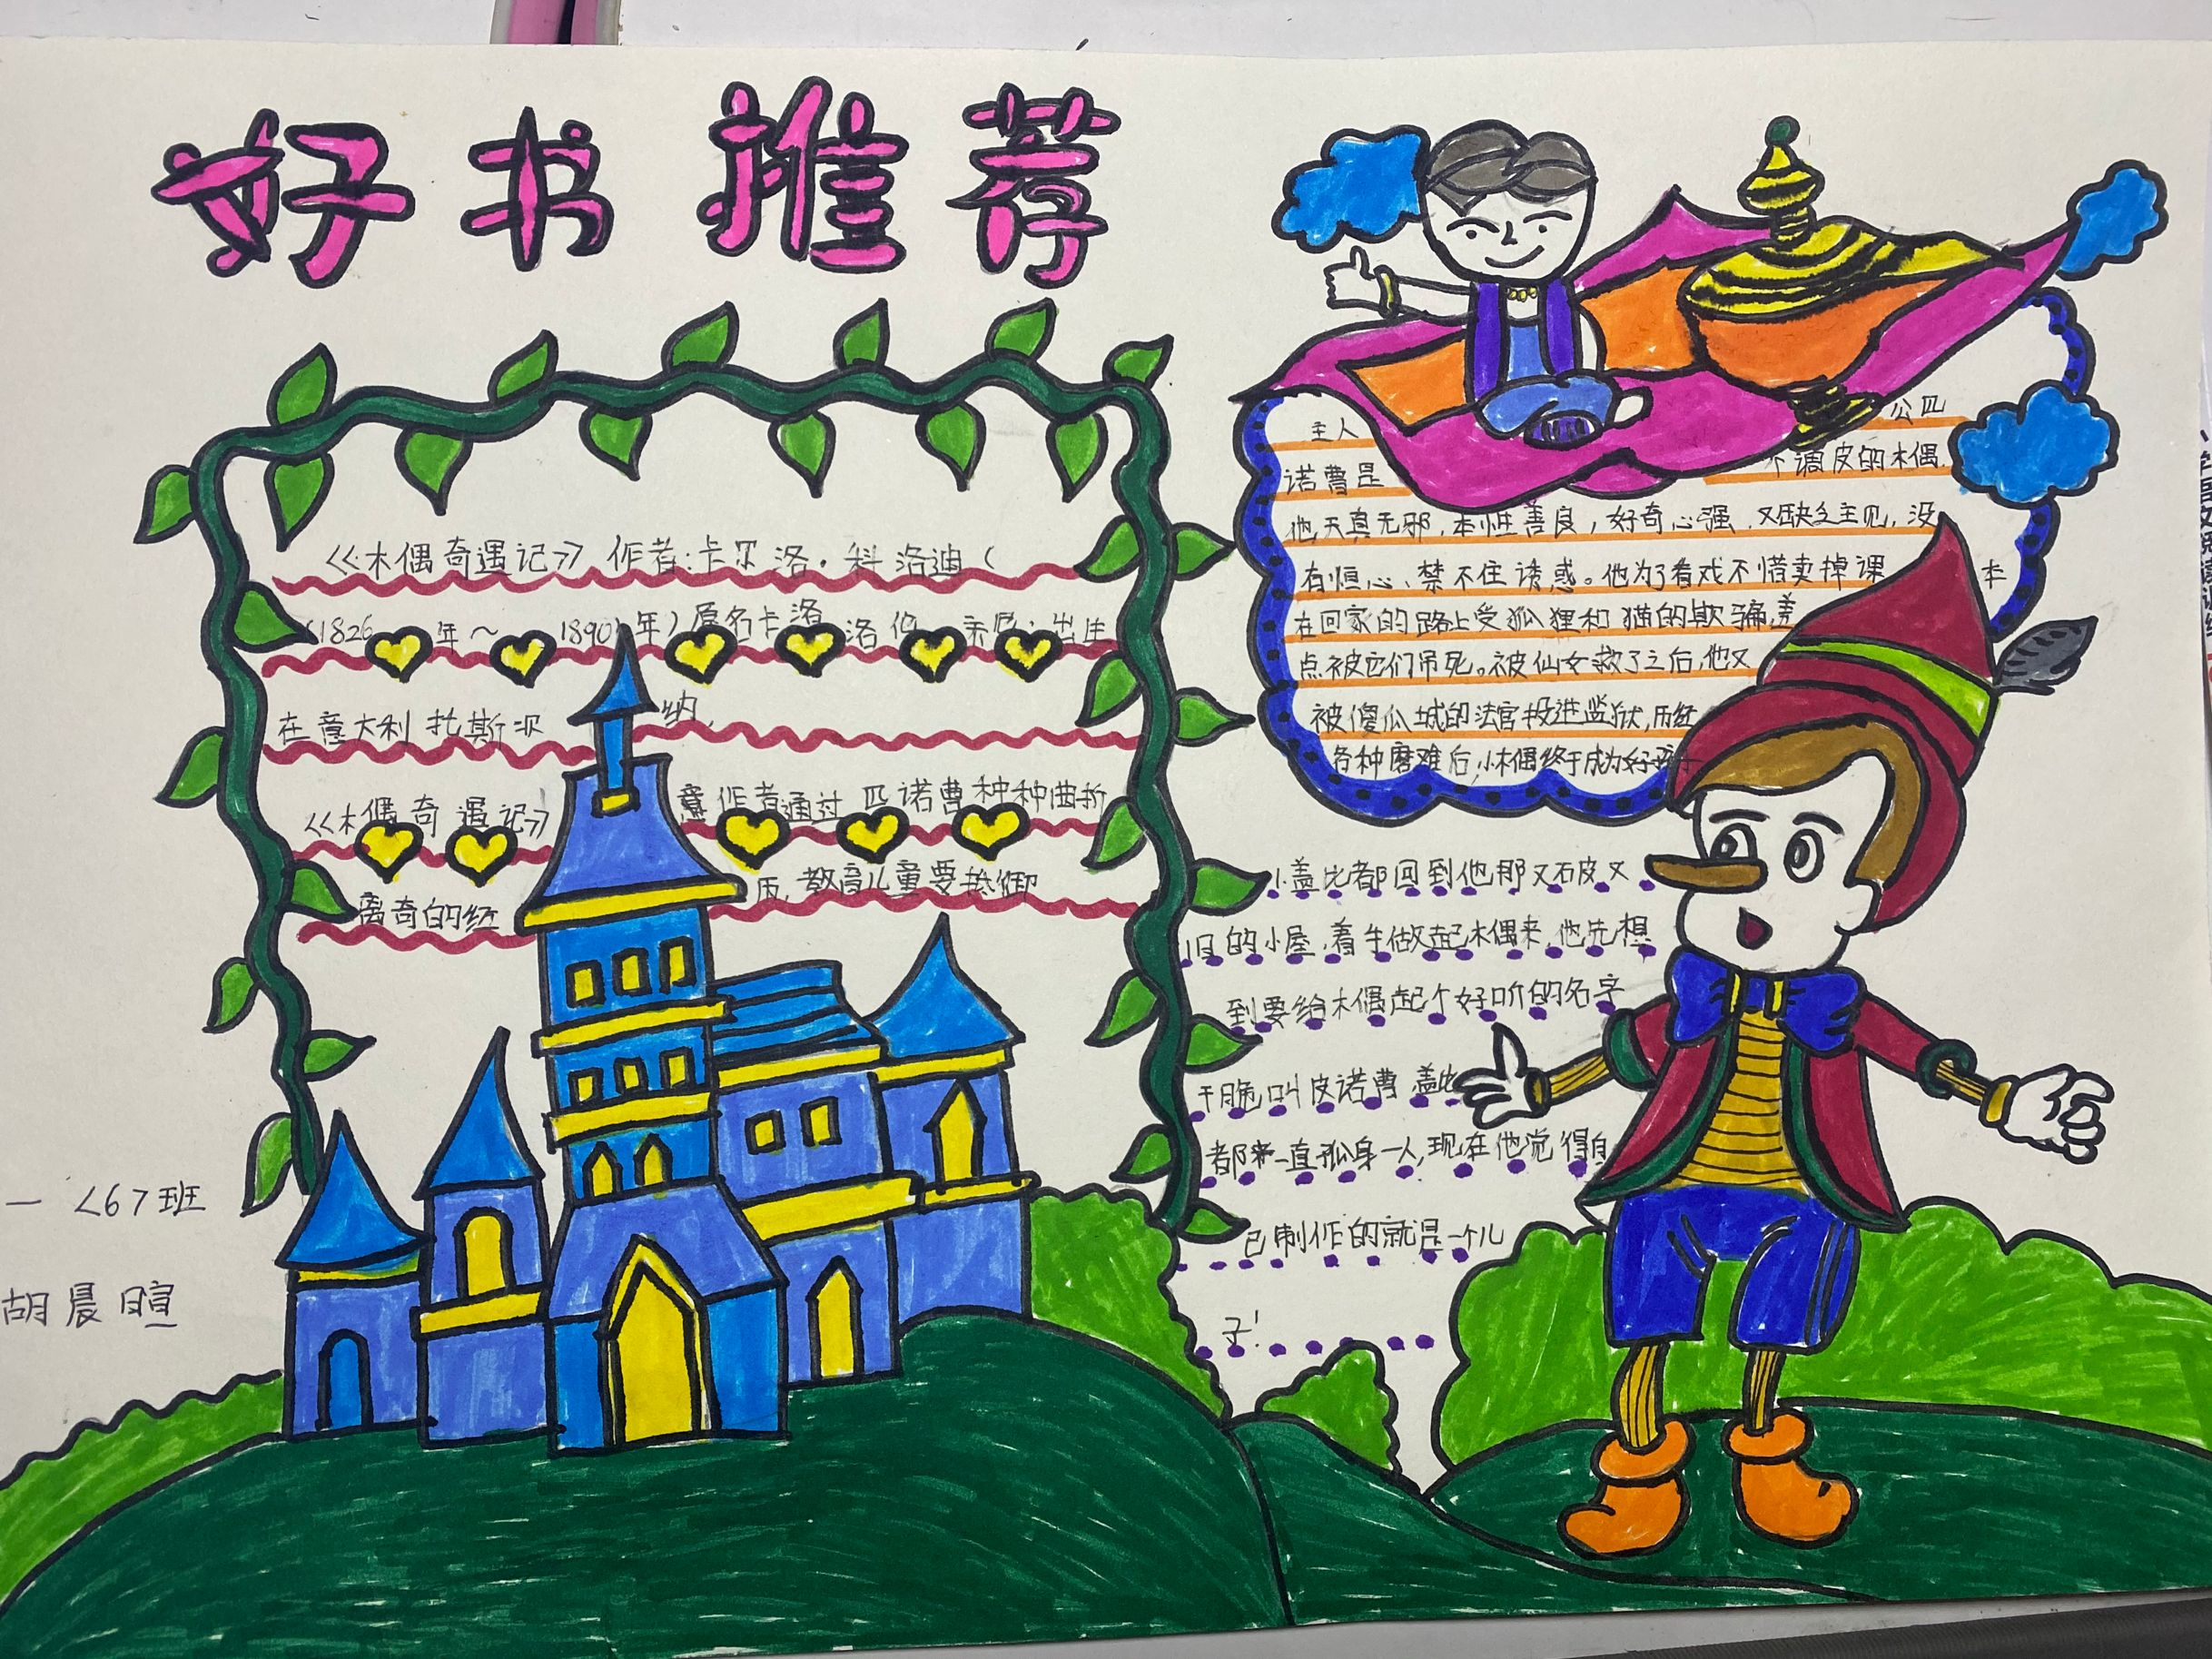 好书推荐
《木偶奇遇记》作者:卡尔洛·科洛迪(
(1826年～1890年)原名卡洛洛伦 出生
在意大利托斯 纳,
《木偶奇遇记》 意作者通过匹诺曹种种曲折
离奇的经 历,教育儿童要抵御
主人 公匹
诺曹是 个调皮的木偶,
他天真无邪,本性善良,好奇心强,又缺乏主见,没
有恒心、禁不住诱惑。他为了看戏不惜卖掉课 本
在回家的路上受狐狸和猫的欺骗,差
点被它们吊死。被仙女救了之后,他又
被傻瓜城的法官投进监狱,历经
各种磨难后,小木偶终于成为好孩子
盖比都回到他那又破又
旧的小屋,着手做起木偶来,他先想
到要给木偶起个好听的名字
干脆叫皮诺曹 盖比
都来一直孤身一人,现在他觉得自
己制作的就是一个儿
子!
一〈6〉班
胡晨暄